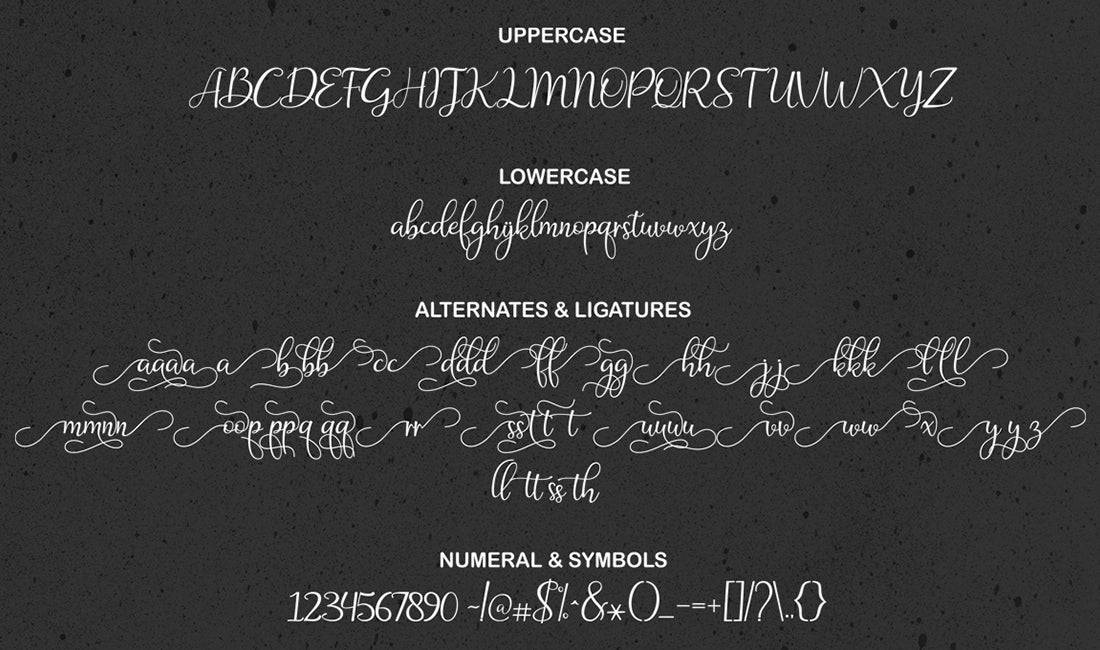 UPPERCASE
ABCDEFGHIJKLMNOPQRSTUVWXYZ
LOWERCASE
abcdefghijklmnopqrstuvwxyz
ALTERNATES & LIGATURES
aaaa a b bb cc ddd ff gg hh jj kkk lll
mmnn oop ppq qq rr sst t t uuuu vv ww x y y z
ll tt ss th
NUMERAL & SYMBOLS
1234567890 ~!@#$%^&*()_-=+[]/?\.,{}